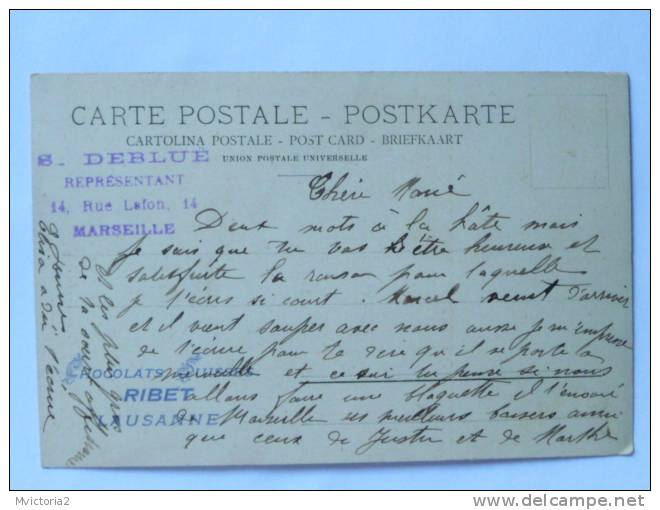 CARTE POSTALE - POSTKARTE
CARTOLINA POSTALE - POST CARD - BRIEFKAART
UNION POSTALE UNIVERSELLE
S. DEBLUE
REPRÉSENTANT
14, Rue Lafon, 14
MARSEILLE
Chère Marie
Deux mots à la hâte mais
je sais que tu vas être heureuse et
satisfaite la raison pour laquelle
je t'écris si court. Marcel vient d'arriver
et il vient souper avec nous aussi je m'empresse
de t'écrire pour te dire qu'il se porte à
merveille et ce soir tu penses si nous
allons faire une blaguette il t'envoie
de Marseille ses meilleurs baisers ainsi
que ceux de Justin et de Marthe
CHOCOLATS SUISSES
RIBET
LAUSANNE
et les plus gros
de ta sœur
Mvictoria2
delcampe.net